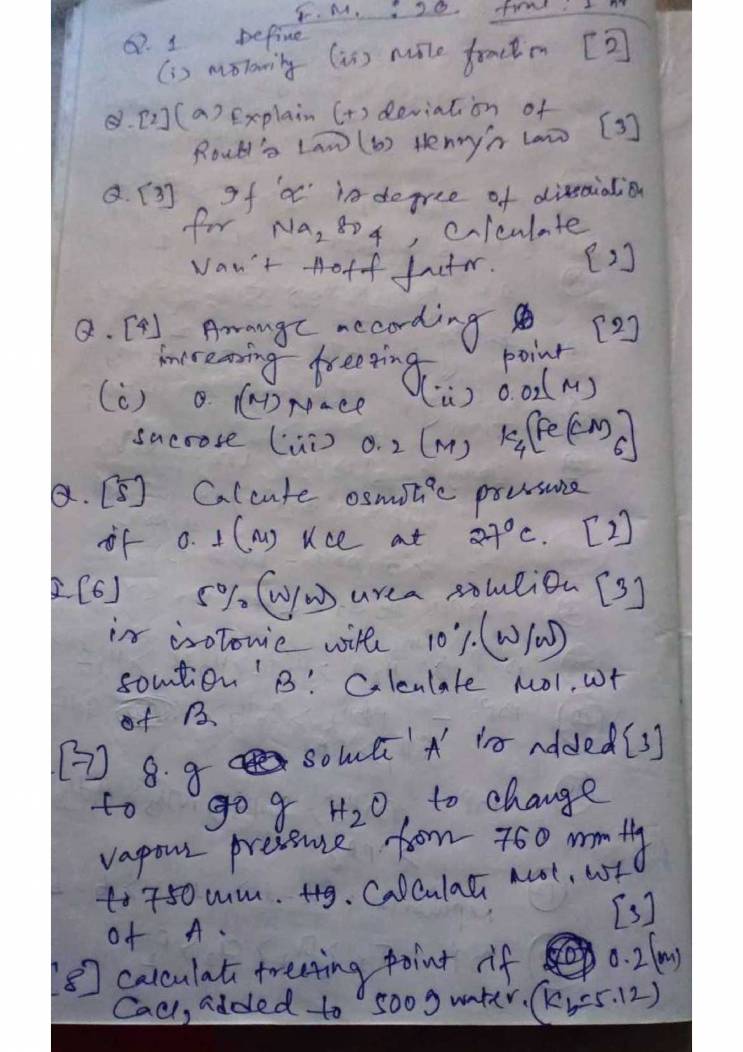 F.M. : 20 Time : 1 hr
Q. 1 Define
(i) Molarity (ii) Mole fraction [2]
Q. [2] (a) Explain (+) deviation of
Roult's Law (b) Henry's Law [3]
Q. [3] If 'α' is degree of dissociation
for Na2SO4, Calculate
Van't Hoff factor. [2]
Q. [4] Arrange according [2]
increasing freezing point
(i) 0.1(M) NaCl (ii) 0.02(M)
sucrose (iii) 0.2 (M) K4[Fe(CN)6]
Q. [5] Calcute osmotic pressure
if 0.1(M) KCl at 27°C. [2]
[6] 5% (W/W) urea solution [3]
is isotonic with 10% (W/W)
solution 'B'. Calculate Mol. wt
of B.
[7] 8. g solute 'A' is added [3]
to 90 g H2O to change
vapour pressure from 760 mm Hg
to 750 mm. Hg. Calculate Mol. wt
of A. [3]
[8] Calculate freezing point if 0.2(m)
CaCl2 added to 500 g water. (Kb=5.12)